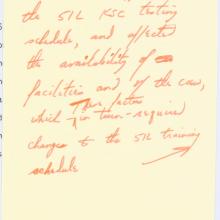 the S1L KSC testing
schedule, and affected
the availability of
facilities and of the crew,
These factors
which in turn required
changes to the S1L training
schedule